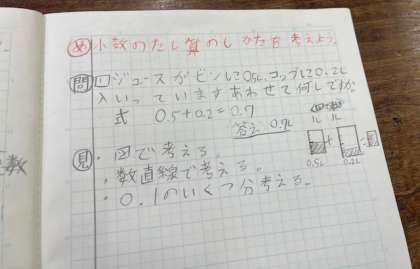 め 小数のたし算のしかたを考えよう。
問 1 ジュースがビンに0.5L、コップに0.2L
入いっていますあわせて何Lですか
式 0.5+0.2=0.7
答え 0.7L
1L 1L
0.5L 0.2L
見 ・図で考える。
・数直線で考える。
・0.1のいくつ分考える。
数